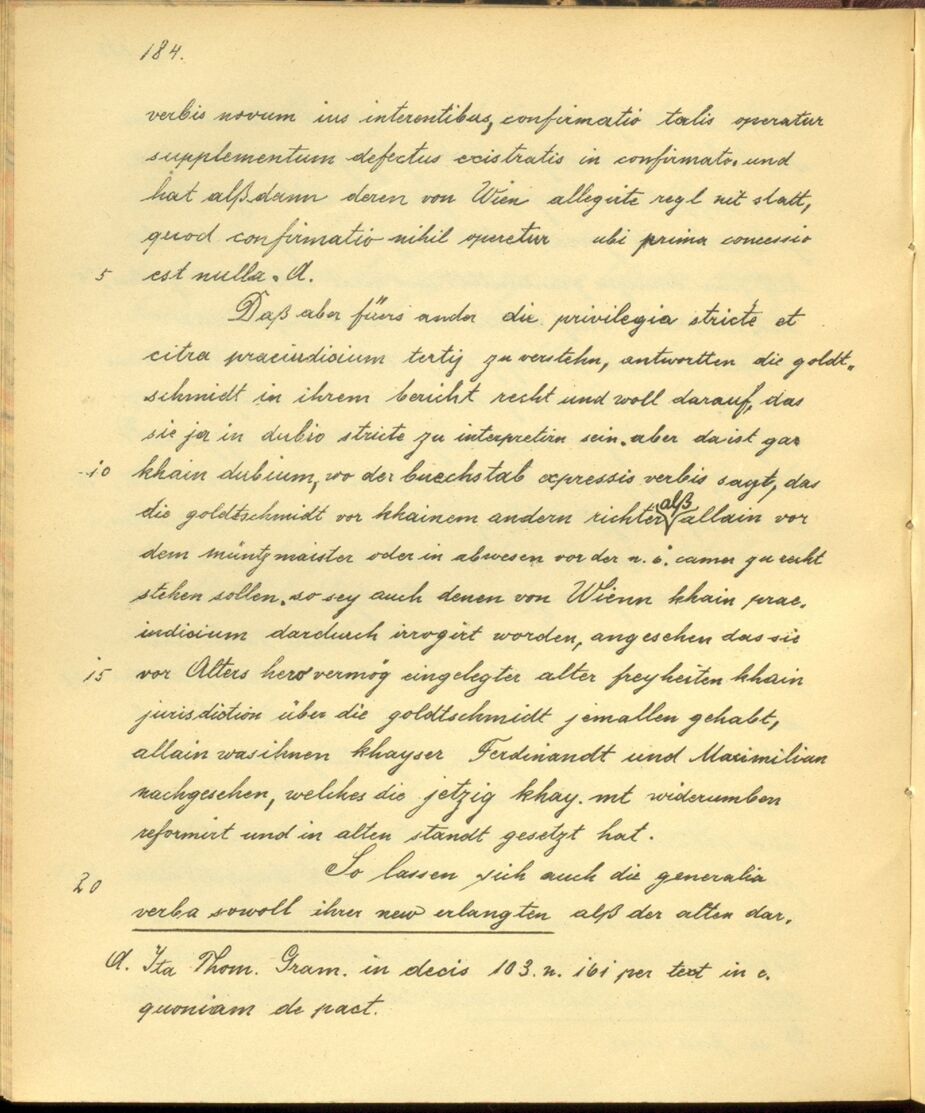 184.
verbis novum ius interentibus, confirmatio talis operatur
supplementum defectus existratis in confirmato. und
hat alß dann deren von Wien allegirte regl nit statt,
quod confirmatio nihil operetur ubi prima concessio
5 est nulla. A.
Daß aber fürs ander die privilegia stricte et
citra praeiudicium tertij zu verstehn, antwortten die goldt-
schmidt in ihrem bericht recht und woll darauf, das
sie ja in dubio stricte zu interpretirn sein. aber da ist gar
10 khain dubium, wo der buechstab expressis verbis sagt, das
die goldtschmidt vor khainem andern richter alß allain vor
dem müntzmaister oder in abwesen vor der n. ö. camer zu recht
stehen sollen. so sey auch denen von Wienn khain prae-
iudicium dardurch irrogirt worden, angesehen das sie
15 vor Alters hero vermög eingelegter alter freyheiten khain
jurisdiction über die goldtschmidt jemallen gehabt,
allain was ihnen khayser Ferdinandt und Maximilian
nachgesehen, welches die jetzig khay. mt widerumben
reformirt und in alten standt gesetzt hat.
20 So lassen sich auch die generalia
verba sowoll ihrer new erlangten alß der alten dar-
A. Ita Thom. Gram. in decis 103. n. 161 per text in c.
quoniam de pact.